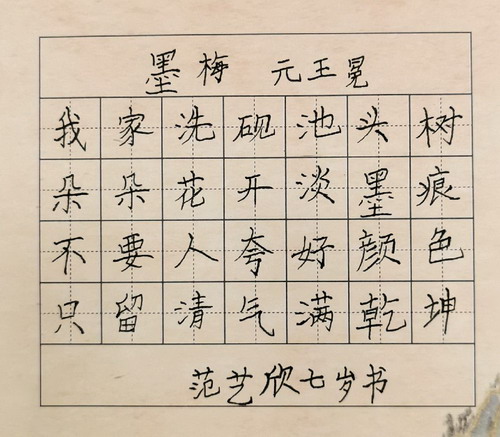 墨梅 元王冕
我家洗砚池头树
朵朵花开淡墨痕
不要人夸好颜色
只留清气满乾坤
范艺欣七岁书